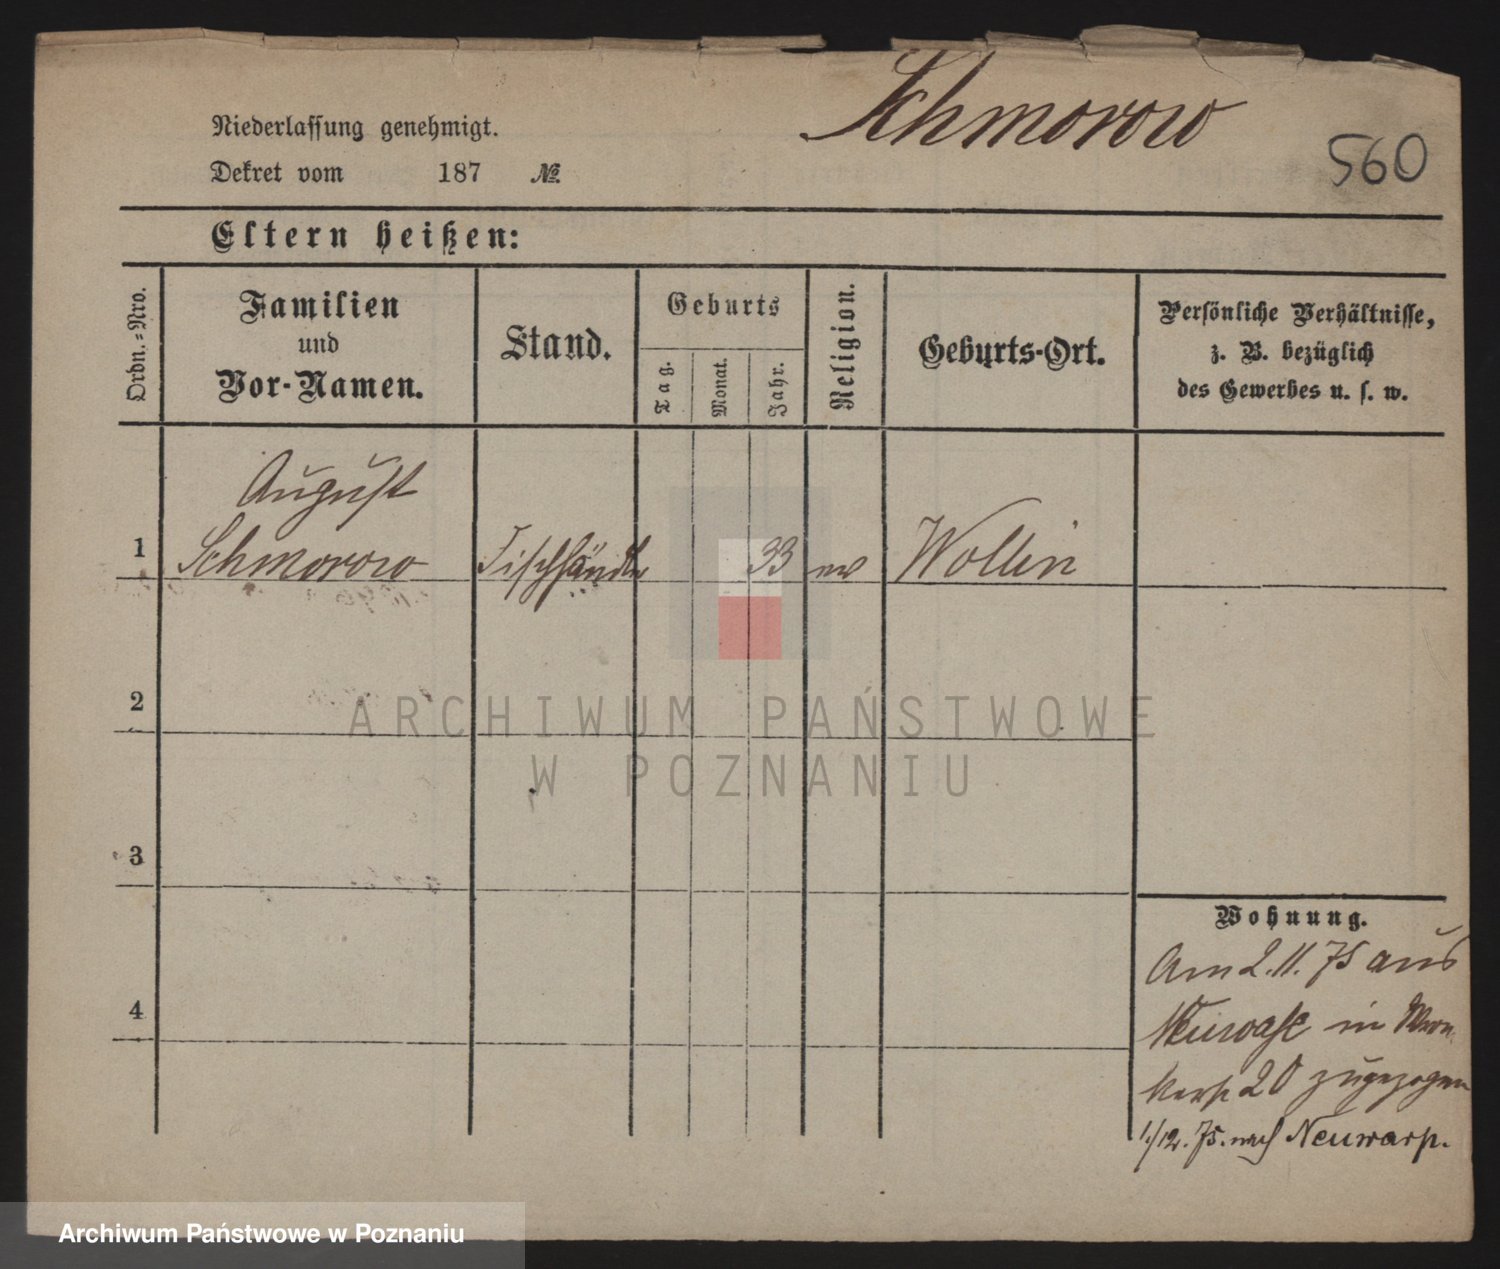 Schmorow
560
Niederlassung genehmigt.
Dekret vom 187 №
Eltern heißen:
Ordn.-Nro.
Familien
und
Vor-Namen.
Stand.
Geburts
Tag.
Monat.
Jahr.
Religion.
Geburts-Ort.
Persönliche Verhältnisse,
z. B. bezüglich
des Gewerbes u. s. w.
August
1 Schmorow Fischhändler 33 ev Wollin
2
3
4
Wohnung.
Am 2.11.75 aus
in
20 zugezogen
1/12. 75. nach Neuwarp.
ARCHIWUM PAŃSTWOWE
W POZNANIU
Archiwum Państwowe w Poznaniu